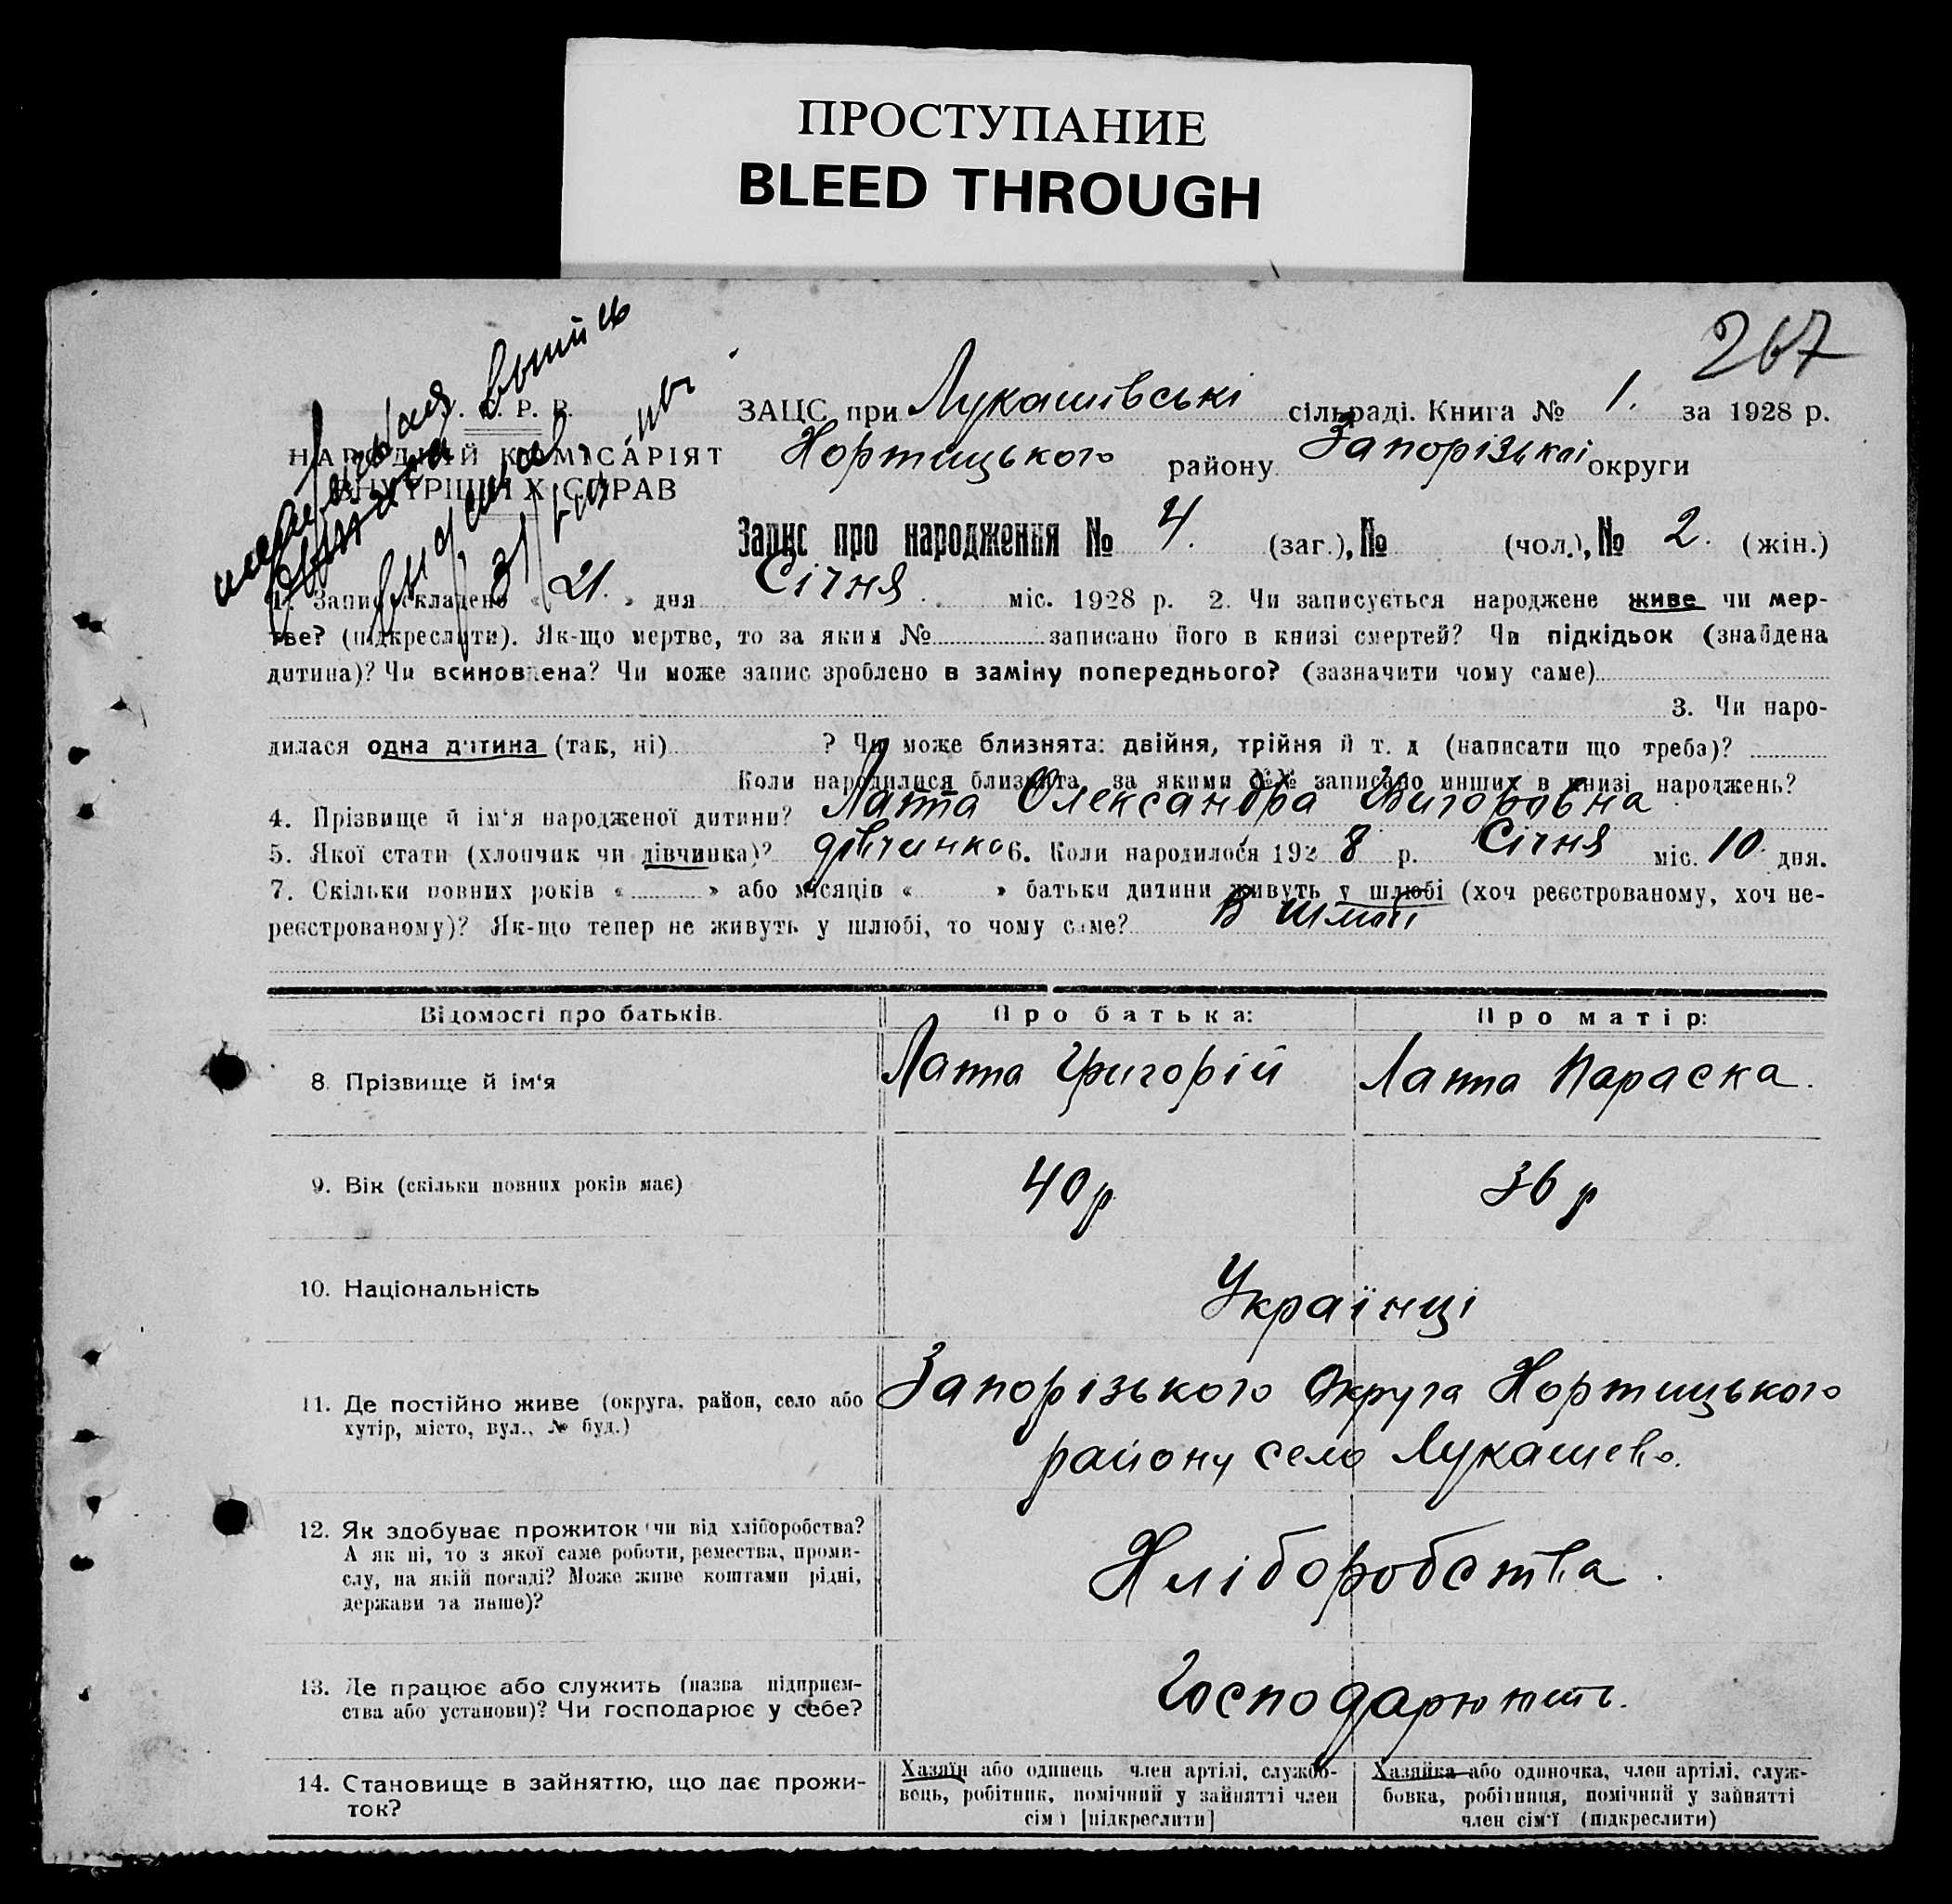 ПРОСТУПАНИЕ
BLEED THROUGH
267
Р. Р.
НАРОДНИЙ КОМІСАРІЯТ
ВНУТРІШНІХ СПРАВ
ЗАЦС при Лукашівські сільраді. Книга № 1. за 1928 р.
Хортицького району Запорізькоі округи
Запис про народження № 4. (заг.), № (чол.), № 2. (жін.)
1. Запис складено «21.» дня Січня міс. 1928 р. 2. Чи записується народжене живе чи мер-
тве? (підкреслити). Як-що мертве, то за яким № записано його в книзі смертей? Чи підкідьок (знайдена
дитина)? Чи всиновлена? Чи може запис зроблено в заміну попереднього? (зазначити чому саме)
3. Чи наро-
дилася одна дитина (так, ні) ? Чи може близнята: двійня, трійня й т. д (написати що треба)?
Коли народилися близнята за якими №№ записано инших в книзі народжень?
4. Прізвище й ім'я народженої дитини? Лапта Олександра Григоровна
5. Якої стати (хлопчик чи дівчинка)? дівчинка 6. Коли народилося 1928 р. Січня міс. 10 дня.
7. Скільки повних років « » або місяців « » батьки дитини живуть у шлюбі (хоч реєстрованому, хоч не-
реєстрованому)? Як-що тепер не живуть у шлюбі, то чому саме? В шлюбі
Відомості про батьків. Про батька: Про матір:
8. Прізвище й ім'я Лапта Григорій Лапта Параска.
9. Вік (скільки повних років має) 40 р 36 р
10. Національність Українці
11. Де постійно живе (округа, район, село або Запорізького Округа Хортицького
хутір, місто, вул., № буд.) району село Лукашево.
12. Як здобуває прожиток (чи від хліборобства?
А як ні, то з якої саме роботи, ремества, проми-
слу, на якій посаді? Може живе коштами рідні,
держави та инше)? Хліборобства.
13. Де працює або служить (назва підприєм-
ства або установи)? Чи господарює у себе? Господарюють.
14. Становище в зайняттю, що дає прожи-
ток?
Хазяїн або одинець член артілі, службо-
вець, робітник, помічний у зайнятті член
сім'ї [підкреслити]
Хазяйка або одиночка, член артілі, служ-
бовка, робітниця, помічний у зайнятті
член сім'ї (підкреслити)